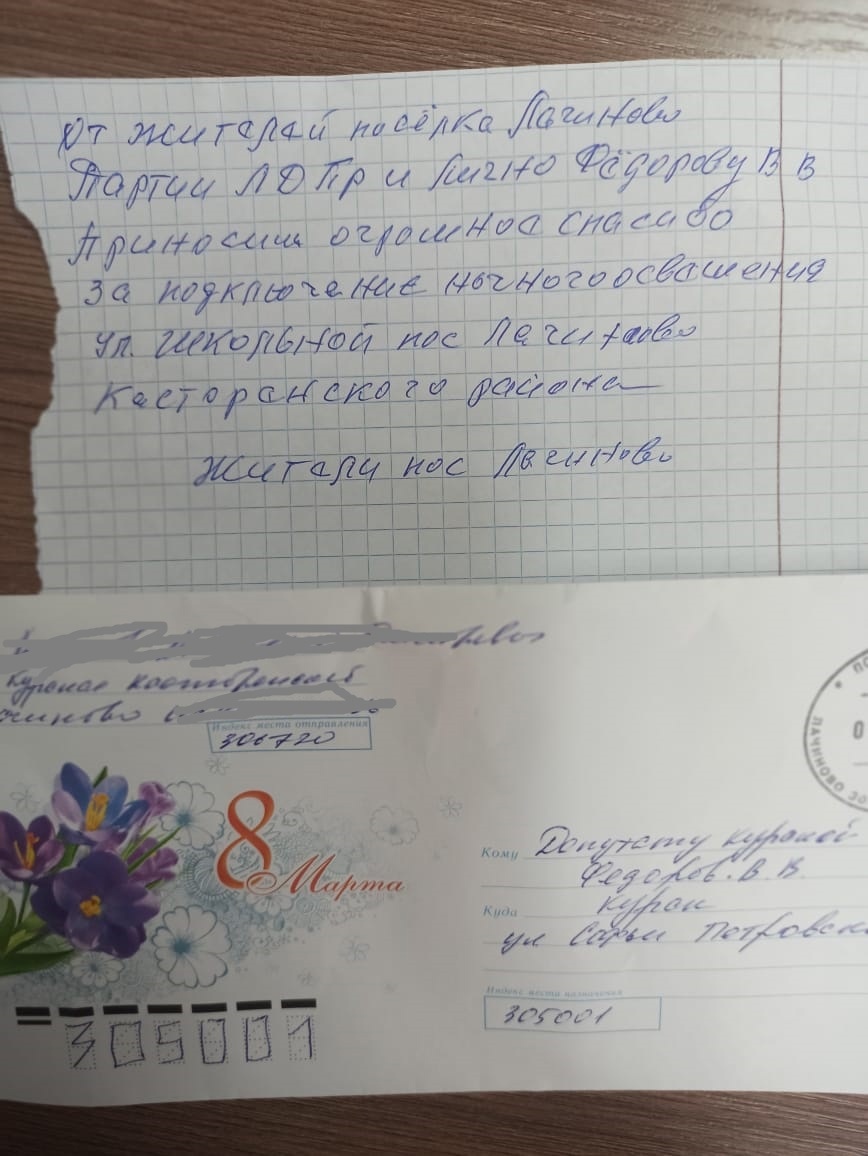 От жителей посёлка Лачиново
Партии ЛДПр и лично Фёдорову В В
Приносим огромное спасибо
За подключение ночного освещения
ул. Школьной пос Лачиново
Касторенского района
Жители пос Лачиново
Курская Касторенский
чиново
Индекс места отправления
306720
8 Марта
ЛАЧИНОВО
Кому Депутату курской
Федоров. В. В.
Куда Курск
ул Софьи Петровск
Индекс места назначения
305001
305001